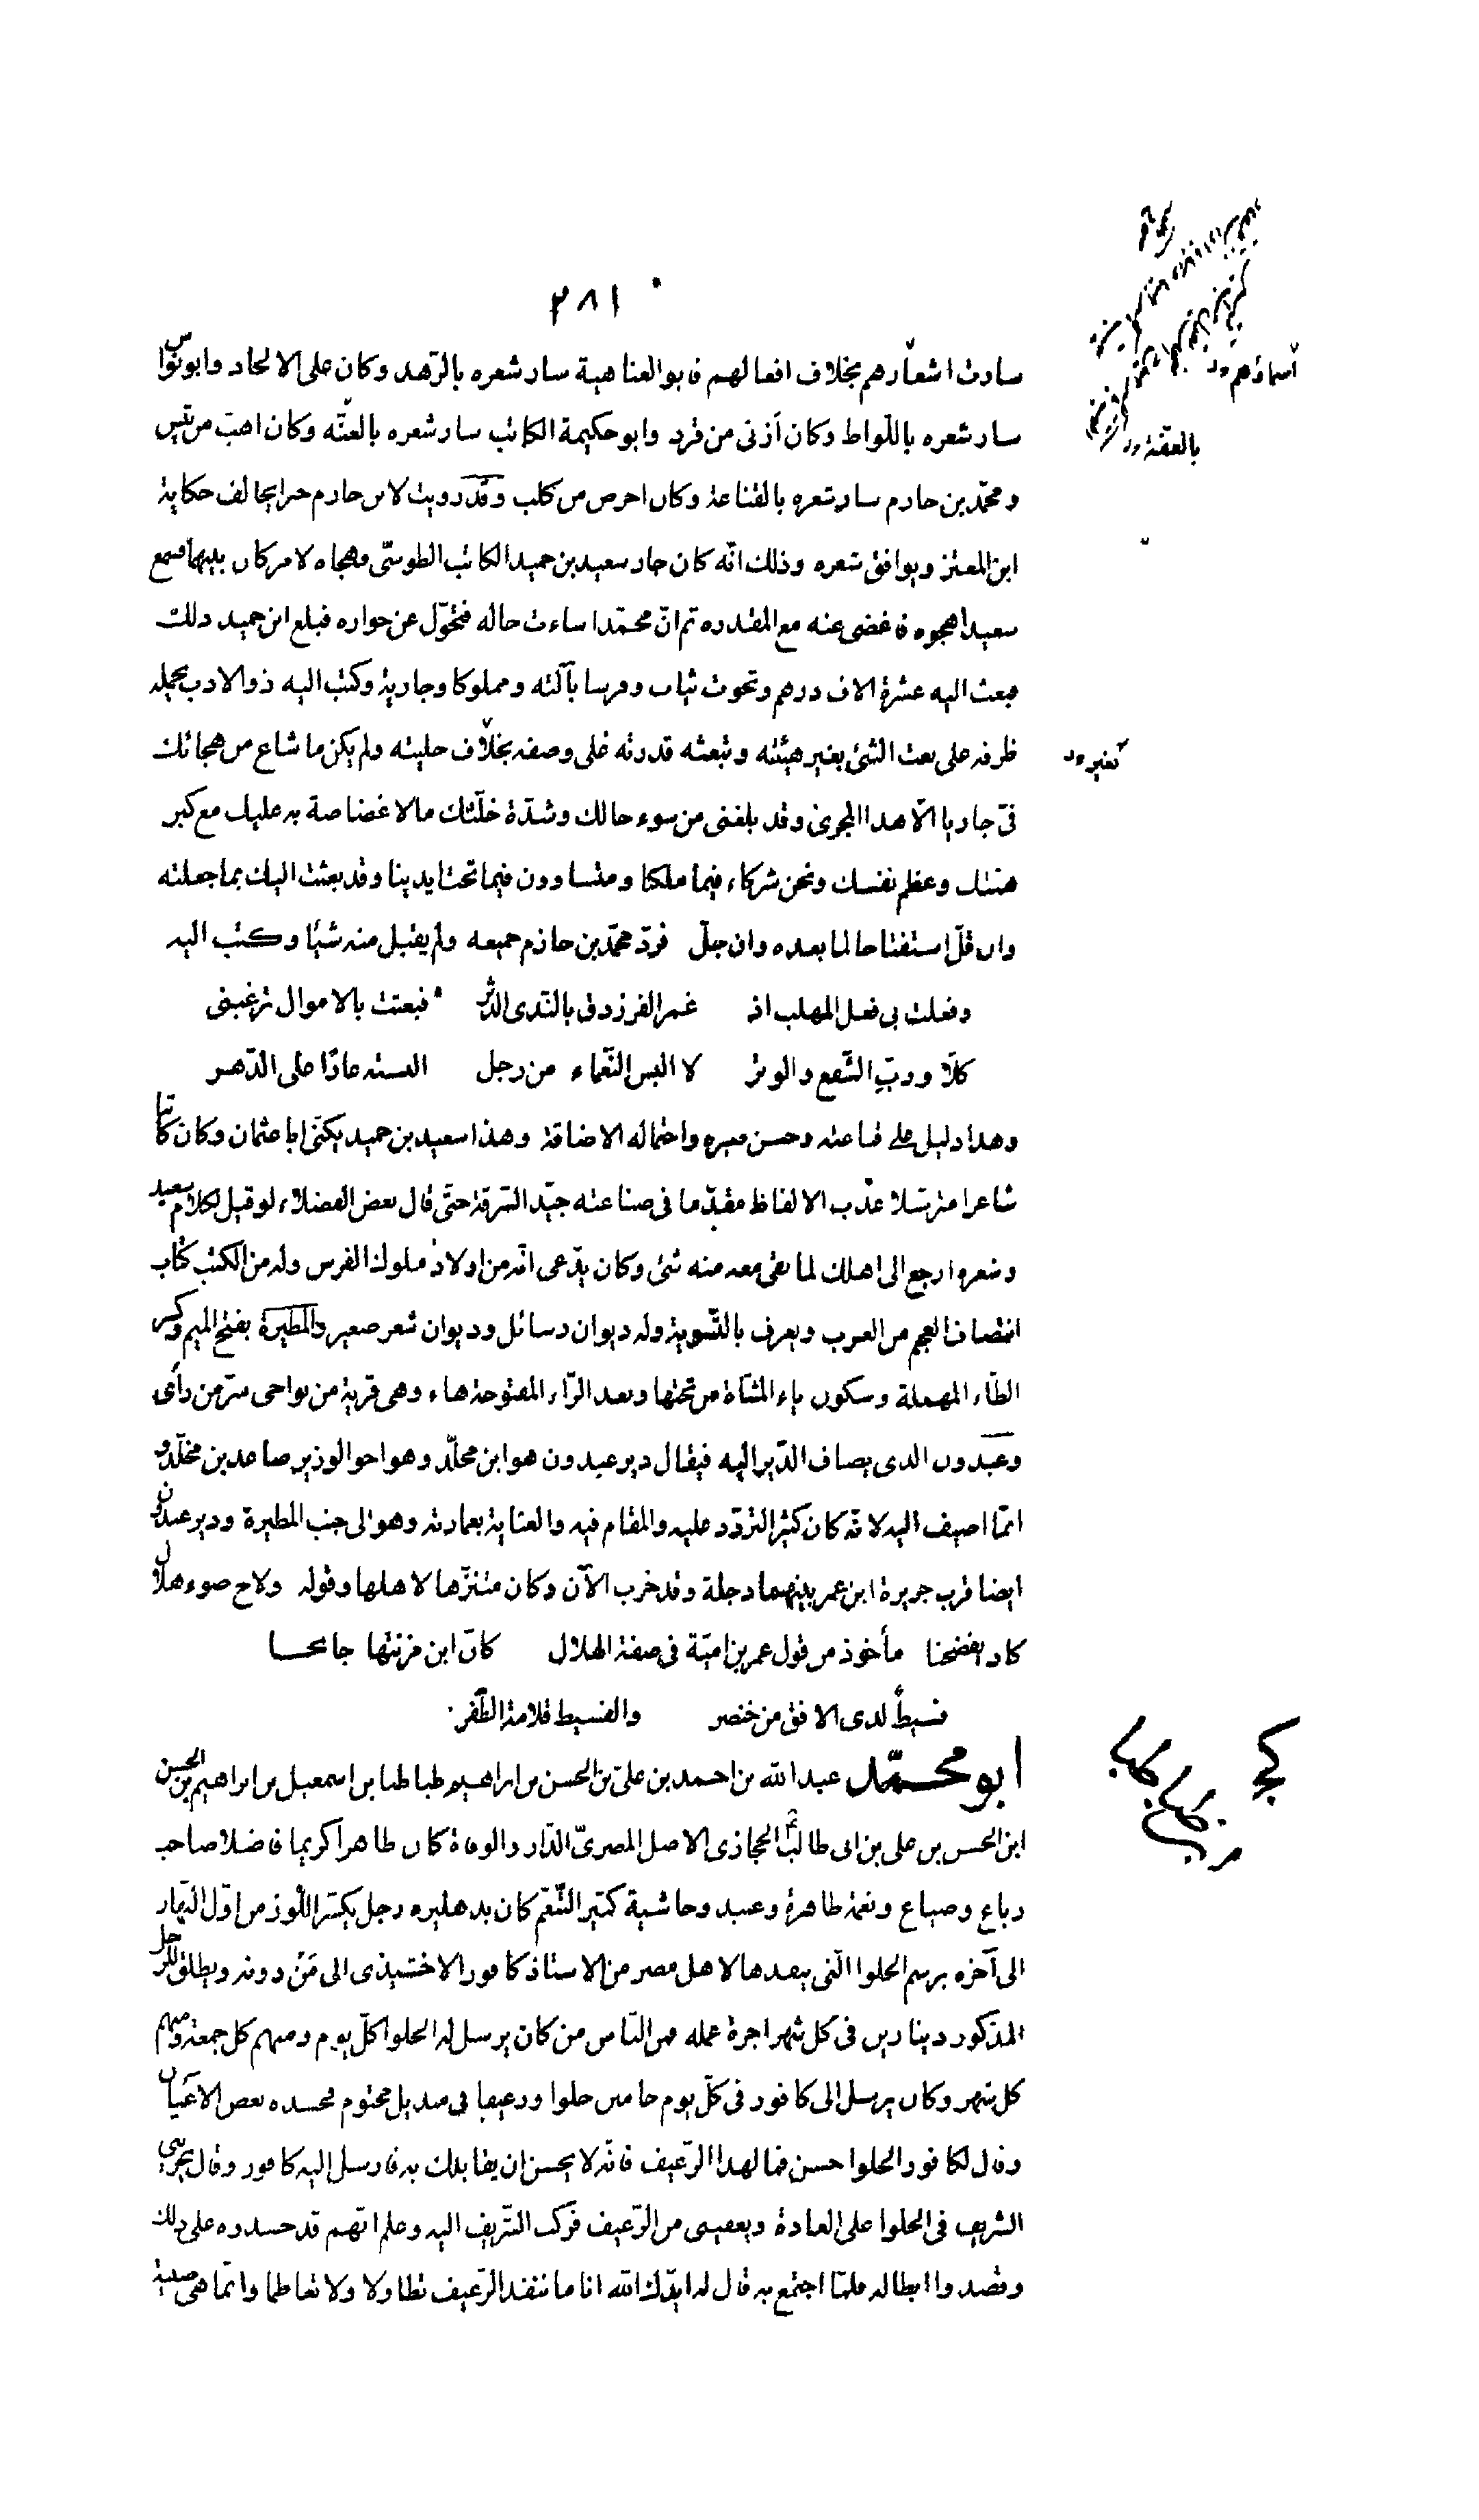 ٢٨١
سارت اشعارهم بخلاف افعالهم فابو العتاهية سار شعره بالزهد وكان على الالحاد وابو نواس
سار شعره باللواط وكان أزنى من قرد وابو حكيمة الكاتب سار شعره بالعنّه وكان اهبّ من تيس
ومحمّد بن حازم سار شعره بالقناعة وكان احرص من كلب وقد رويت لابن حازم خبرا يخالف حكاية
ابن المعتز ويوافق شعره وذلك انّه كان جار سعيد بن حميد الكاتب الطوسىّ وهجاه لامر كان بينهما فسمع
سعيد اهجوه فاغضى عنه مع المقدره ثم انّ محمّدا ساءت حاله فتحوّل عن جواره فبلغ ابن حميد ذلك
فبعث اليه عشرة الاف درهم وتخوت ثياب وفرسا بآلته ومملوكا وجارية وكتب اليه ذو الادب يحمله
ظرفه على بعث الشئ بغير هيئته وتبعثه قدرته على وصفه بخلاف حليته ولم يكن ما شاع من هجائك
فىّ جاريا الّا هذا المجرى وقد بلغنى من سوء حالك وشدّة خلّتك ما لا غضاضة به عليك مع كبر
همّتك وعظم نفسك ونحن شركاء فيما ملكنا ومتساوون فيما تحت ايدينا وقد بعثت اليك بما جعلته
وان قلّ استفتاحا لما بعده وان جلّ فردّ محمّد بن حازم جميعه ولم يقبل منه شيئا وكتب اليه
وفعلت بى فعل المهلب اذ غمر الفرزدق بالنّدى الدّثر فبعثت بالاموال ترغبنى
كلّا وربّ الشّفع والوتر لا البس النّعماء من رجل البسته عارًا على الدّهر
وهذا دليل على قناعته وحسن صبره واحتماله الاضاقة وهذا سعيد بن حميد يكنّى ابا عثمان وكان كاتبا
شاعرا مترسّلا عذب الالفاظ مقدّما فى صناعته جيّد السّرقة حتّى قال بعض الفضلاء لو قيل لكلام سعيد
وشعره ارجع الى اهلك لما بقى معه منه شئ وكان يدّعى انّه من اولاد ملوك الفرس وله من الكتب كتاب
انتصاف العجم من العرب ويعرف بالتّسوية وله ديوان رسائل وديوان شعر صغير والمطيرة بفتح الميم وكسر
الطّاء المهملة وسكون ياء المثنّاة من تحتها وبعد الرّاء المفتوحة هاء وهى قرية من نواحى سرّ من رأى
وعبدون الذى يضاف الدّير اليه فيقال دير عبدون هو ابن مخلّد وهو اخو الوزير صاعد بن مخلّد و
انّما اضيف اليه لانّه كان كثير التردّد عليه والمقام فيه والعناية بعمارته وهو الى جنب المطيرة ودير عبدون
ايضا قرب جزيرة ابن عمر بينهما دجلة وقد خرب الآن وكان متنزّها لاهلها وقوله ولاح ضوء هلال
كاد يفضحنا مأخوذ من قول عمر بن اميّة فى صفة الهلال كانّ ابن مزنتها جانحـا
فسيطٌ لدى الافق من خنصر والفسيط قلامة الظّفر
ابو محمّد عبدالله بن احمد بن علىّ بن الحسن بن ابراهيم طباطبا بن اسمعيل بن ابراهيم بن الحسن
ابن الحسن بن على بن ابى طالب الحجازى الاصل المصرىّ الدّار والوفاة كان طاهرا كريما فاضلا صاحب
رباع وضياع ونعمة ظاهرة وعبيد وحاشية كثير التّنعّم كان بدهليزه رجل يكسر اللّوز من اوّل النّهار
الى آخره برسم الحلوا الّتى ينفذها لاهل مصر من الاستاذ كافور الاخشيذى الى مَن دونه ويطلق للرجل
المذكور دينارين فى كل شهر اجرة عمله فمن النّاس من كان يرسل له الحلوا كلّ يوم ومنهم كل جمعة ومنهم
كل شهر وكان يرسل الى كافور فى كلّ يوم جامين حلوا ورغيفا فى منديل مختوم فحسده بعض الاعيان
وقال لكافور الحلوا حسن فما لهذا الرّغيف فانّه لا يحسن ان يقابلك به فارسل اليه كافور وقال يجرينى
الشريف فى الحلوا على العادة ويعفينى من الرّغيف فركب الشّريف اليه وعلم انّهم قد حسدوه على ذلك
وقصدوا ابطاله فلمّا اجتمع به قال له ايّدك الله انا ما ننفذ الرّغيف تطاولا ولا تعاظما وانّما هى صبيّة
أسماؤهم
بالعفّة
كغير
بن طباطبا